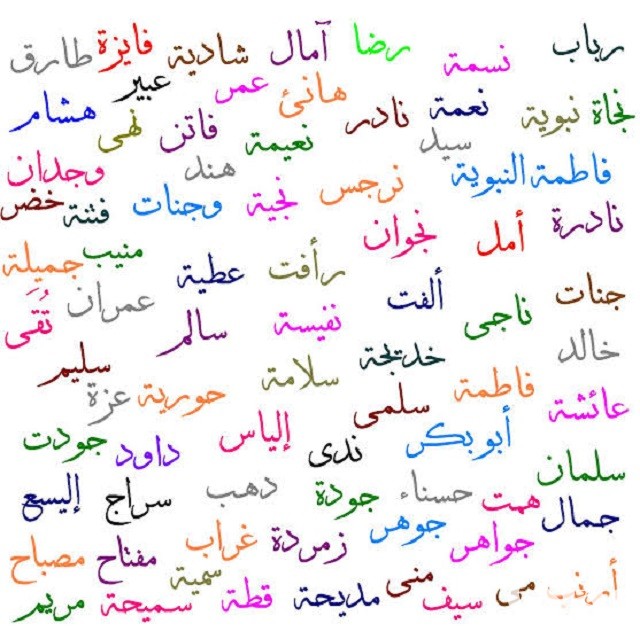 رباب نسمة رضا آمال شادية فايزة طارق
هانئ عمر عبير
نجاة نبوية نعمة نادر فاتن نهى هشام
سيد نعيمة
فاطمة النبوية نرجس نجية هند وجنات فتنة وجدان خضر
نادرة أمل نجوان
رأفت عطية منيب جميلة
جنات ألفت عمران تُقَى
ناجى نفيسة سالم
خالد خديجة سلامة سليم
فاطمة سلمى حورية عزة
عائشة أبو بكر إلياس داود جودت
ندى
سلمان حسناء جودة دهب سراج إليسع
همت
جمال جواهر جوهر زمردة غراب مفتاح مصباح
سمية
أرنب مى منى سيف مديحة قطة سميحة مريم